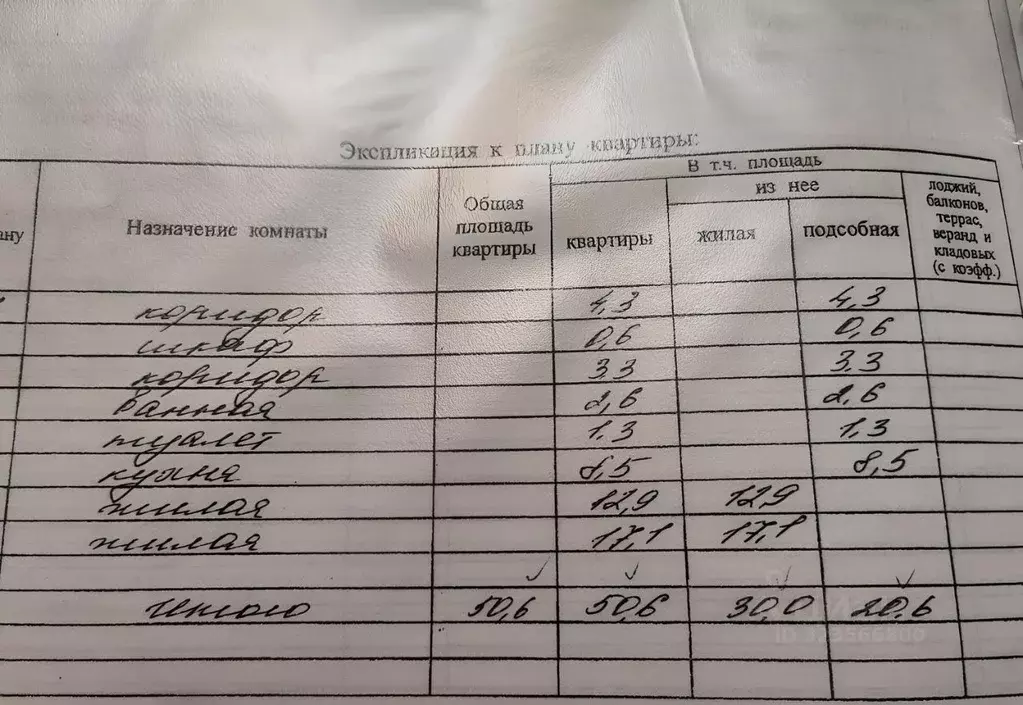 Экспликация к плану квартиры:
В т.ч. площадь
из нее
ану
Назначение комнаты
Общая площадь квартиры
квартиры
жилая
подсобная
лоджий, балконов, террас, веранд и кладовых (с коэфф.)
коридор 4,3 4,3
шкаф 0,6 0,6
коридор 3.3 3.3
ванная 2,6 2.6
туалет 1.3 1,3
кухня 8,5 8,5
жилая 12,9 12,9
жилая 17,1 17,1
Итого 50,6 50,6 30,0 20,6